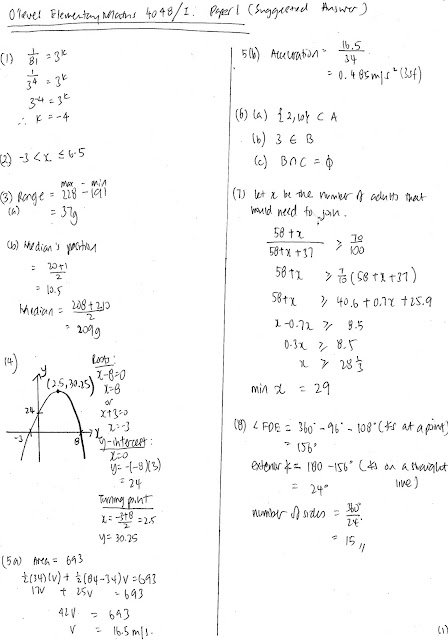 O'level Elementary Maths 4048/1. Paper 1 (Suggested Answer)
(1) 1/81 = 3^k
1/3^4 = 3^k
3^-4 = 3^k
∴ k = -4
(2) -3 < x ≤ 6.5
max - min
(3) Range = 228 - 191
(a) = 37g
(b) Median's position
= (20+1)/2
= 10.5
Median = (208+210)/2
= 209g
14)
y
(2.5, 30.25)
24
-3
8
x
Roots:
x-8=0
x=8
or
x+3=0
x=-3
y-intercept:
x=0
y=-(-8)(3)
= 24
Turning point
x = (-3+8)/2 = 2.5
y = 30.25
(5a) Area = 693
½(34)(v) + ½(84-34)v = 693
17v + 25v = 693
42v = 693
v = 16.5 m/s.
5(b) Acceleration = 16.5/34
= 0.485 m/s² (3sf)
(6) (a) {2,10} ⊂ A
(b) 3 ∈ B
(c) B∩C = ϕ
(7) let x be the number of adults that
would need to join.
(58+x)/(58+x+37) ≥ 70/100
58+x ≥ 7/10 (58+x+37)
58+x ≥ 40.6+0.7x+25.9
x-0.7x ≥ 8.5
0.3x ≥ 8.5
x ≥ 28⅓
min x = 29
(8) ∠FDE = 360° - 96° - 108° (∠s at a point)
= 156°
exterior ∠ = 180 - 156° (∠s on a straight
line)
= 24°
number of sides = 360°/24°
= 15 //
(1)